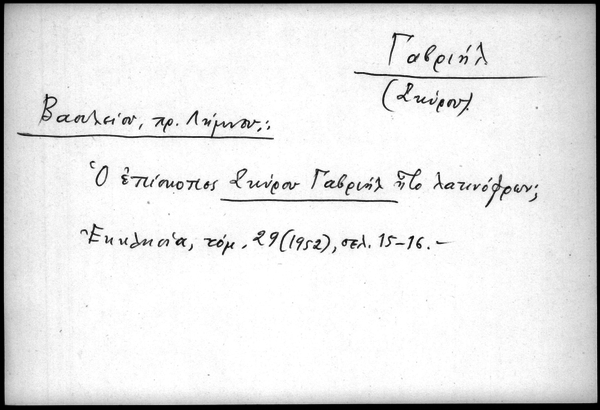 Γαβριήλ
(Σκύρου)
Βασιλείου, πρ. Λήμνου,:
Ὁ ἐπίσκοπος Σκύρου Γαβριήλ ἦτο λατινόφρων;
Ἐκκλησία, τόμ. 29 (1952), σελ. 15-16. -